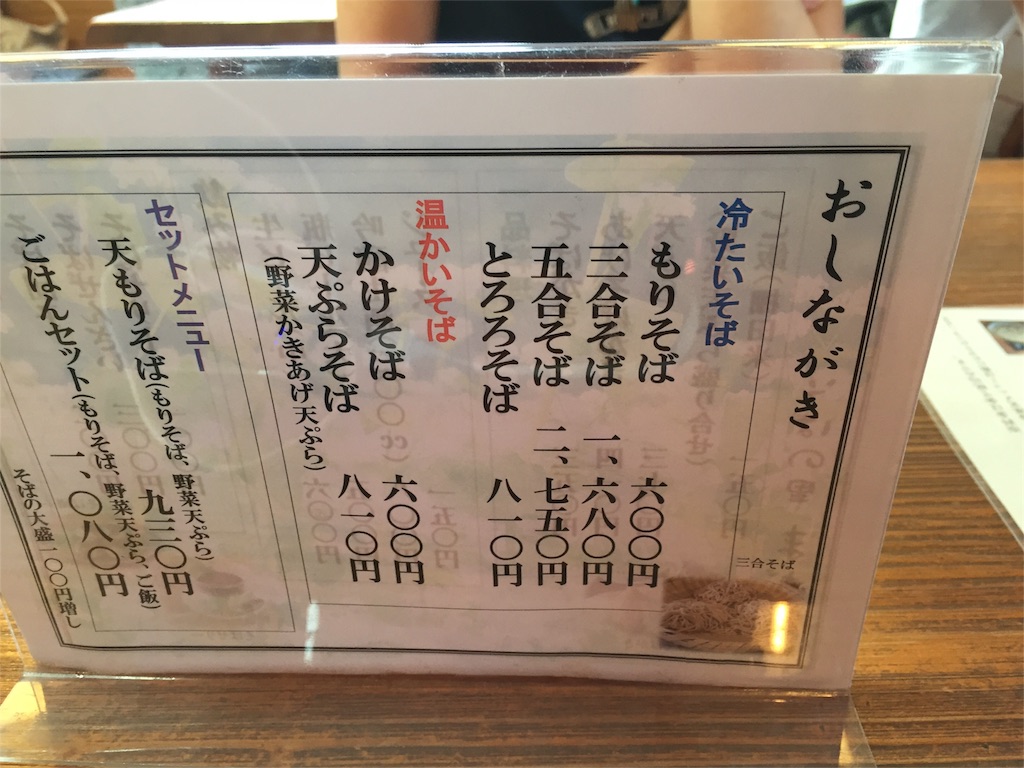 おしながき
冷たいそば
もりそば 六〇〇円
三合そば 一、六八〇円
五合そば 二、七五〇円
とろろそば 八一〇円
三合そば
温かいそば
かけそば 六〇〇円
天ぷらそば 八一〇円
(野菜かきあげ天ぷら)
セットメニュー
天もりそば(もりそば、野菜天ぷら)
九三〇円
ごはんセット(もりそば、野菜天ぷら、ご飯)
一、〇八〇円
そばの大盛一〇〇円増し